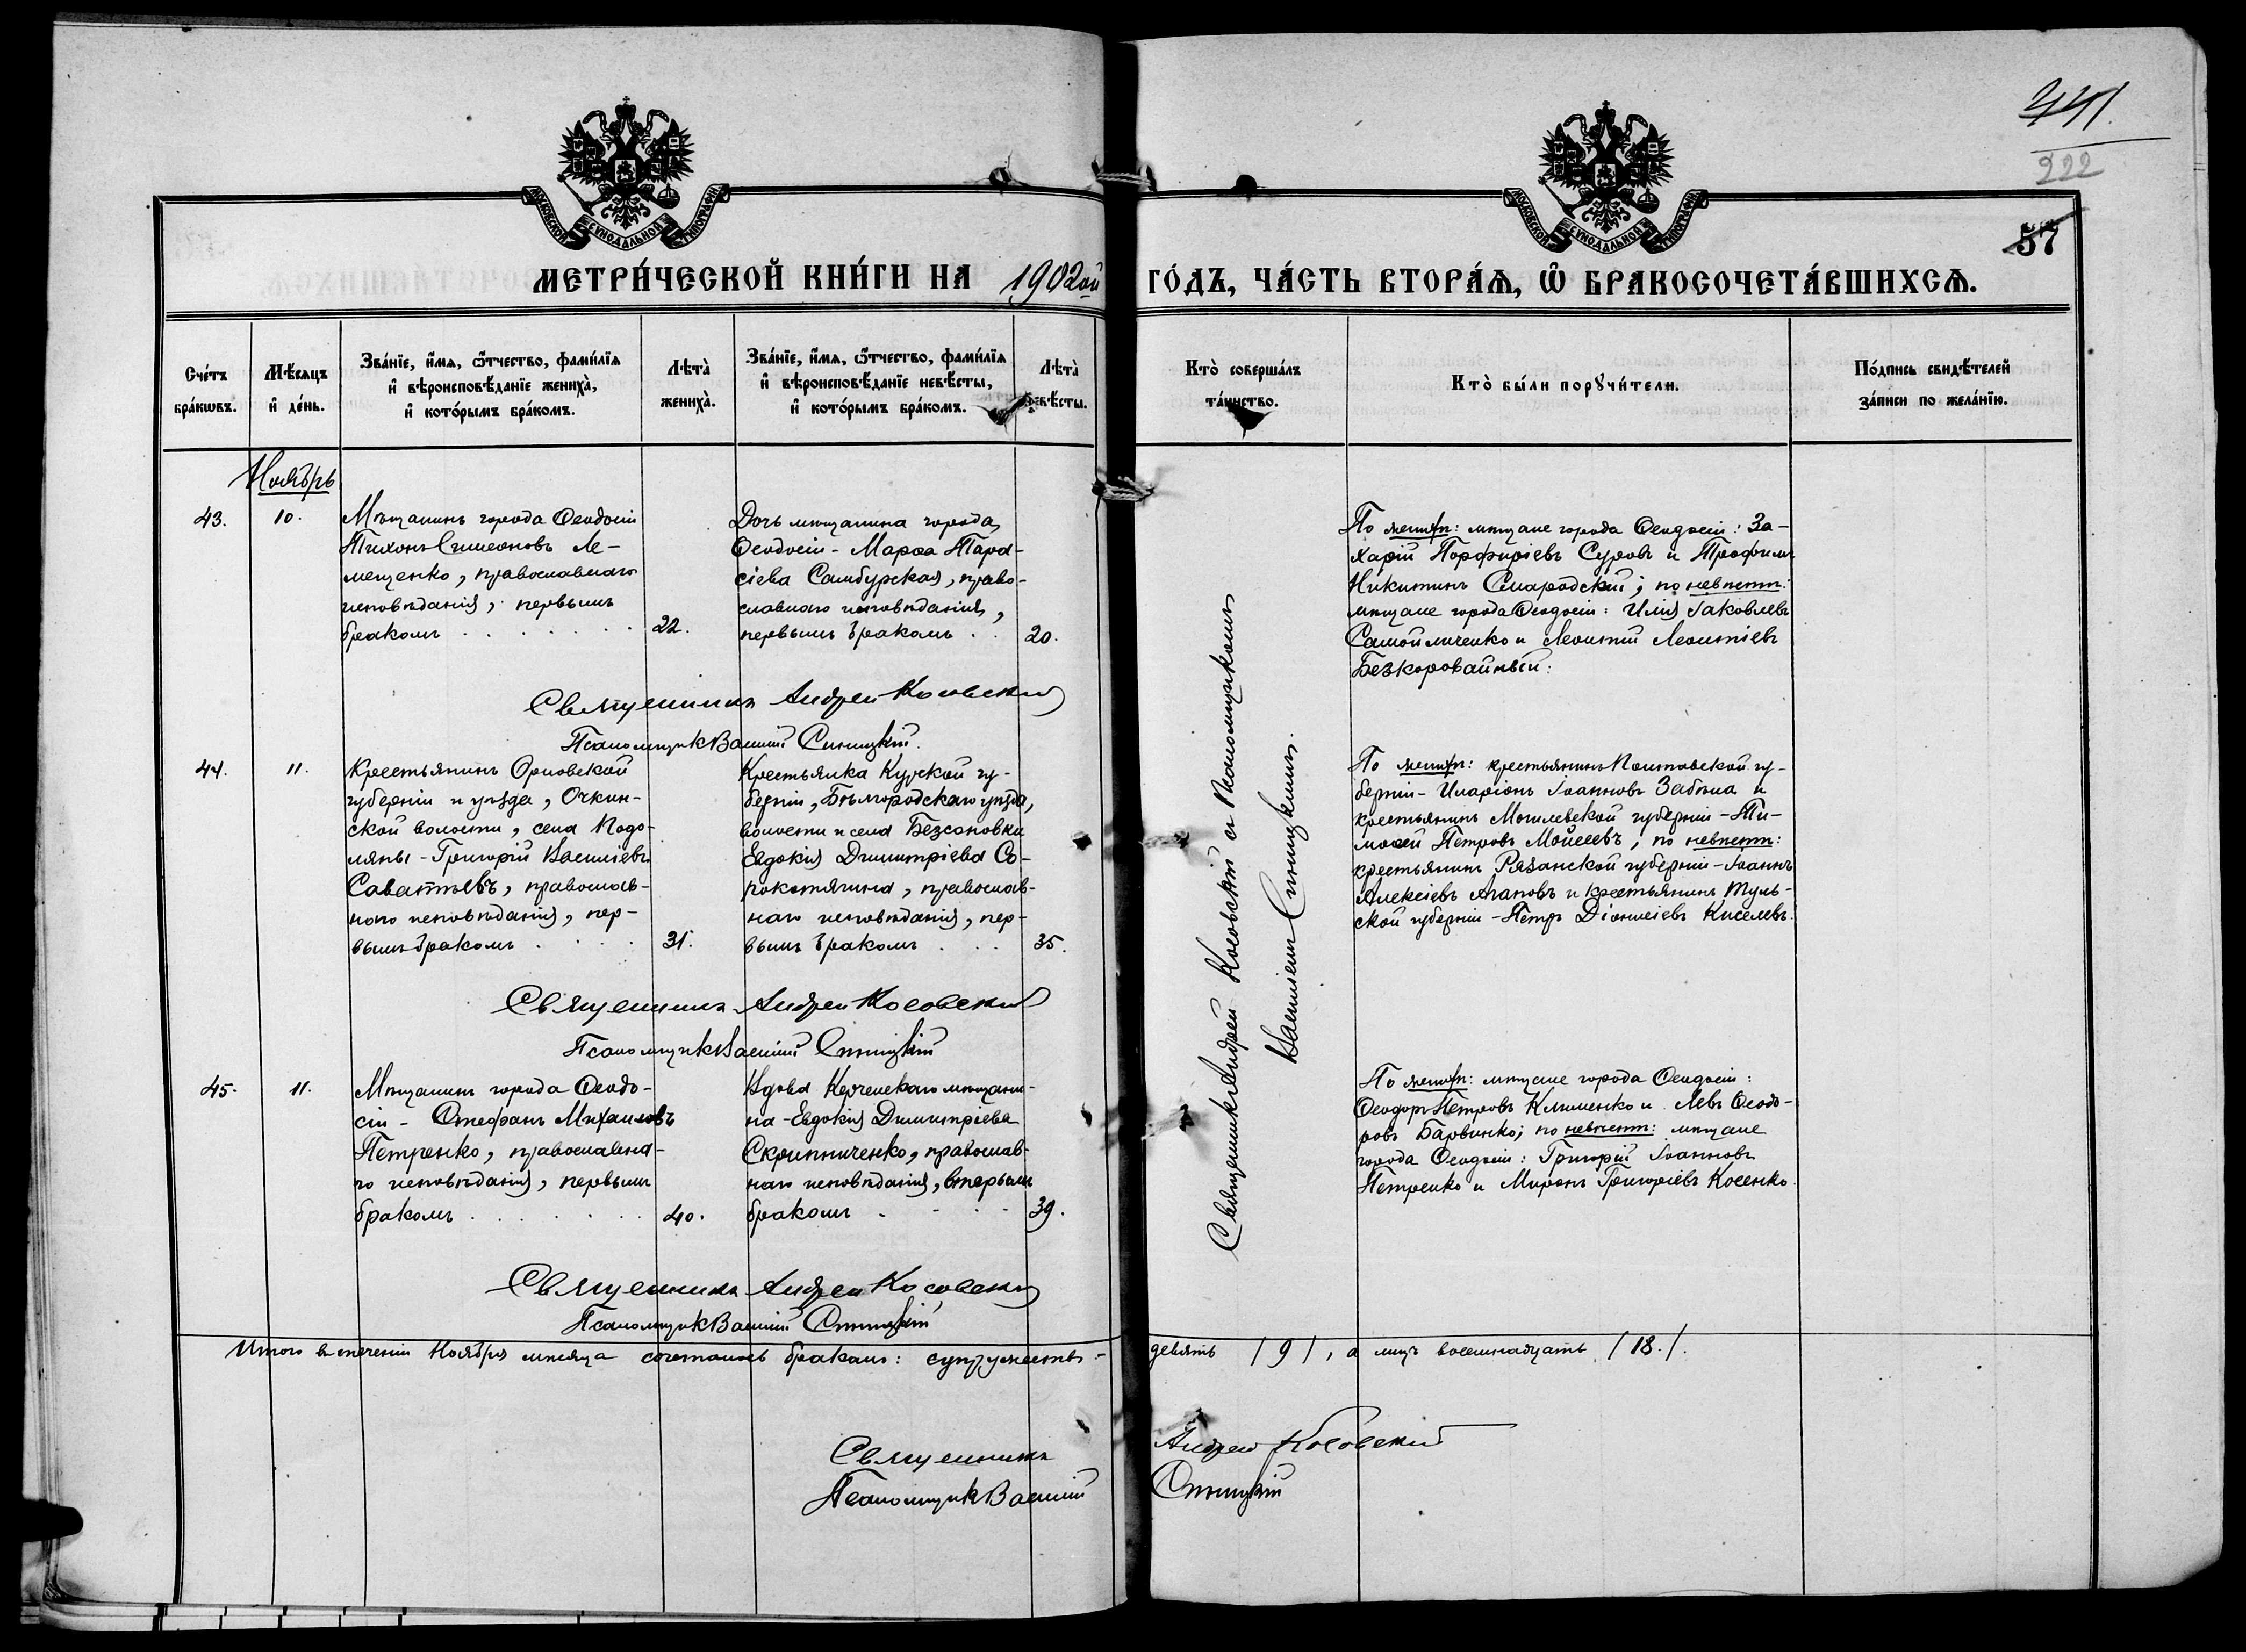 441.
222
57
МОСКОВСКОЙ СѴНОДАЛЬНОЙ ТИПОГРАФІИ
МОСКОВСКОЙ СѴНОДАЛЬНОЙ ТИПОГРАФІИ
МЕТРИ́ЧЕСКОЙ КНИ́ГИ НА 1902ой ГО́ДЪ, ЧА́СТЬ ВТОРА́Ѧ, Ѽ БРАКОСОЧЕТА́ВШИХСѦ.
Сче́тъ
бра́кѡвъ.
Мѣ́сяцъ
и҆ де́нь.
Зва́нїе, и҆́мѧ, ѻ҆́тчество, фами́лїѧ
и҆ вѣроисповѣ́данїе жениха̀,
и҆ кото́рымъ бра́комъ.
Лѣта̀
жениха̀.
Зва́нїе, и҆́мѧ, ѻ҆́тчество, фами́лїѧ
и҆ вѣроисповѣ́данїе невѣ́сты,
и҆ кото́рымъ бра́комъ.
Лѣта̀
невѣ́сты.
Кто̀ соверша́лъ
та́инство.
Кто̀ бы́ли порꙋчи́тели.
По́дпись свидѣ́телей
за́писи по жела́нїю.
Ноябрь
43.
10.
Мѣщанинъ города Ѳеодосіи
Тихонъ Симеоновъ Ле-
мещенко, православнаго
исповѣданія, первымъ
бракомъ . . . . . . .
22.
Дочь мѣщанина города
Ѳеодосіи - Марѳа Тара-
сіева Самбурская, право-
славнаго исповѣданія,
первымъ бракомъ . .
20.
По женихѣ: мѣщане города Ѳеодосіи: За-
харій Порфиріевъ Суровъ и Трофимъ
Никитинъ Смародскій; по невѣстѣ:
мѣщане города Ѳеодосіи: Илія Іаковлевъ
Самойличенко и Леонтій Леонтіевъ
Безкоровайный.
Священникъ Андрей Косовскій
Псаломщикъ Василій Синицкій.
44.
11.
Крестьянинъ Орловской
губерніи и уѣзда, Очкин-
ской волости, села Подо-
ляны - Григорій Василіевъ
Саватѣевъ, православ-
наго исповѣданія, пер-
вымъ бракомъ . . . .
31.
Крестьянка Курской гу-
берніи, Бѣлгородскаго уѣзда,
волости и села Безсоновки
Евдокія Димитріева Со-
рокотягина, православ-
наго исповѣданія, пер-
вымъ бракомъ . . .
35.
По женихѣ: крестьянинъ Полтавской гу-
берніи - Иларіонъ Іоанновъ Забѣла и
крестьянинъ Могилевской губерніи - Ти-
моѳей Петровъ Мойсеевъ; по невѣстѣ:
крестьянинъ Рязанской губерніи - Іоаннъ
Алексіевъ Агаповъ и крестьянинъ Туль-
ской губерніи - Петръ Діонисіевъ Киселевъ.
Священникъ Андрей Косовскій
Псаломщикъ Василій Синицкій
45.
11.
Мѣщанинъ города Ѳеодо-
сіи - Стефанъ Михаиловъ
Петренко, православна-
го исповѣданія, первымъ
бракомъ . . . . . . .
40.
Вдова Керченскаго мѣщани-
на - Евдокія Димитріева
Скрипниченко, православ-
наго исповѣданія, вторымъ
бракомъ - - - -
39.
По женихѣ: мѣщане города Ѳеодосіи:
Ѳеодоръ Петровъ Клименко и Левъ Ѳеодо-
ровъ Барвинко; по невѣстѣ: мѣщане
города Ѳеодосіи: Григорій Іоанновъ
Петренко и Миронъ Григоріевъ Косенко.
Священникъ Андрей Косовскій
Псаломщикъ Василій Синицкій
Священникъ Андрей Косовскій съ псаломщикомъ
Василіемъ Синицкимъ.
Итого въ теченіи Ноября мѣсяца сочеталось бракомъ: супружествъ - девять /9/, а лицъ восемнадцать /18./.
Священникъ Андрей Косовскій
Псаломщикъ Василій Синицкій